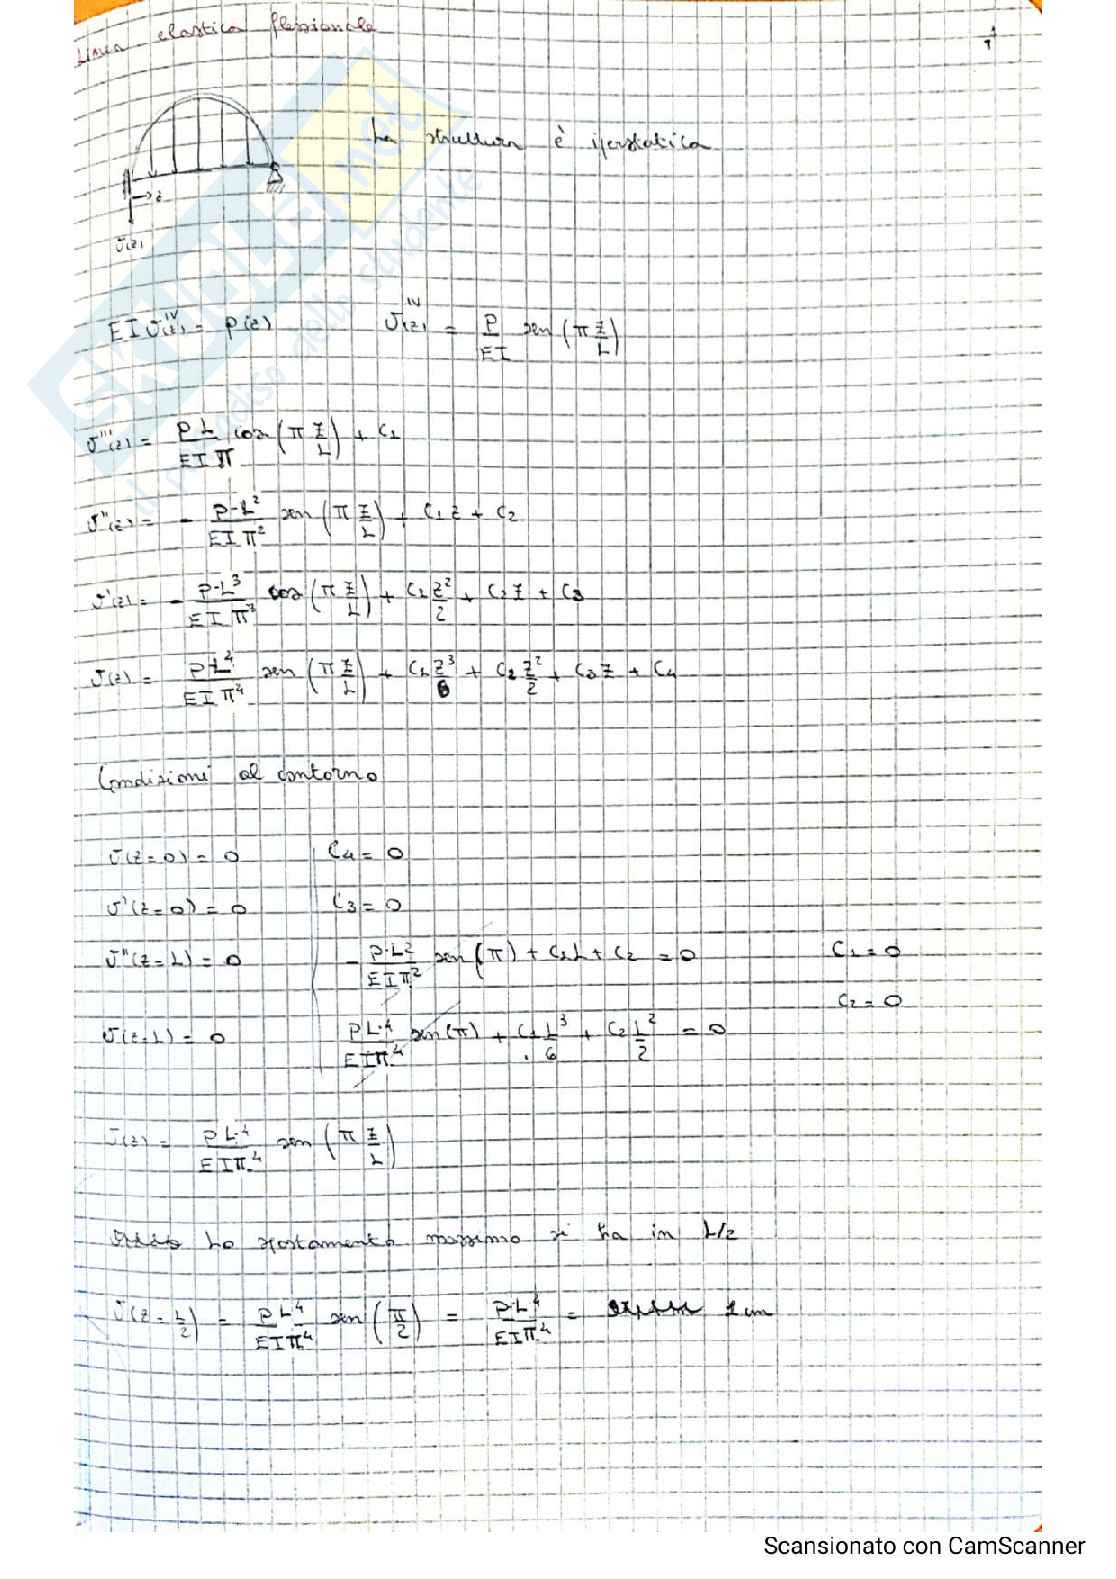 Linea elastica flessionale
1
La struttura è iperstatica
z
v(z)
EI v(z)^IV = p(z)    v(z)^IV = P/EI sen(π z/L)
v'''(z) = PL/EIπ cos(π z/L) + C1
v''(z) = - P·L²/EIπ² sen(π z/L) + C1z + C2
v'(z) = - P·L³/EIπ³ cos(π z/L) + C1 z²/2 + C2z + C3
v(z) = PL⁴/EIπ⁴ sen(π z/L) + C1 z³/6 + C2 z²/2 + C3z + C4
Condizioni al contorno
v(z=0) = 0    C4 = 0
v'(z=0) = 0    C3 = 0
v''(z=L) = 0    - P·L²/EIπ² sen(π) + C1L + C2 = 0    C1 = 0
C2 = 0
v(z=L) = 0    PL⁴/EIπ⁴ sen(π) + C1 L³/6 + C2 L²/2 = 0
v(z) = PL⁴/EIπ⁴ sen(π z/L)
Lo spostamento massimo si ha in L/2
v(z = L/2) = PL⁴/EIπ⁴ sen(π/2) = P·L⁴/EIπ⁴ = 1 cm
SKUOLA.net
il paradiso dello studente
Scansionato con CamScanner